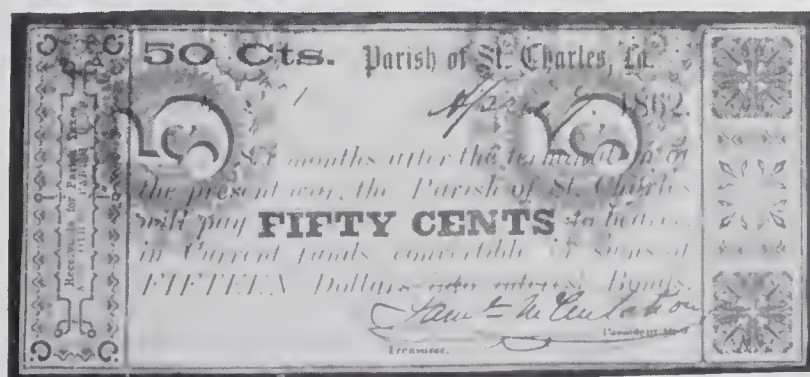 50 Cts. Parish of St. Charles, La.
1862.
Six months after the termination of
the present war, the Parish of St. Charles
will pay FIFTY CENTS to bearer
in Current funds convertible in sums of
FIFTEEN Dollars into interest Bonds.
Treasurer.
President
Receivable for Parish Taxes